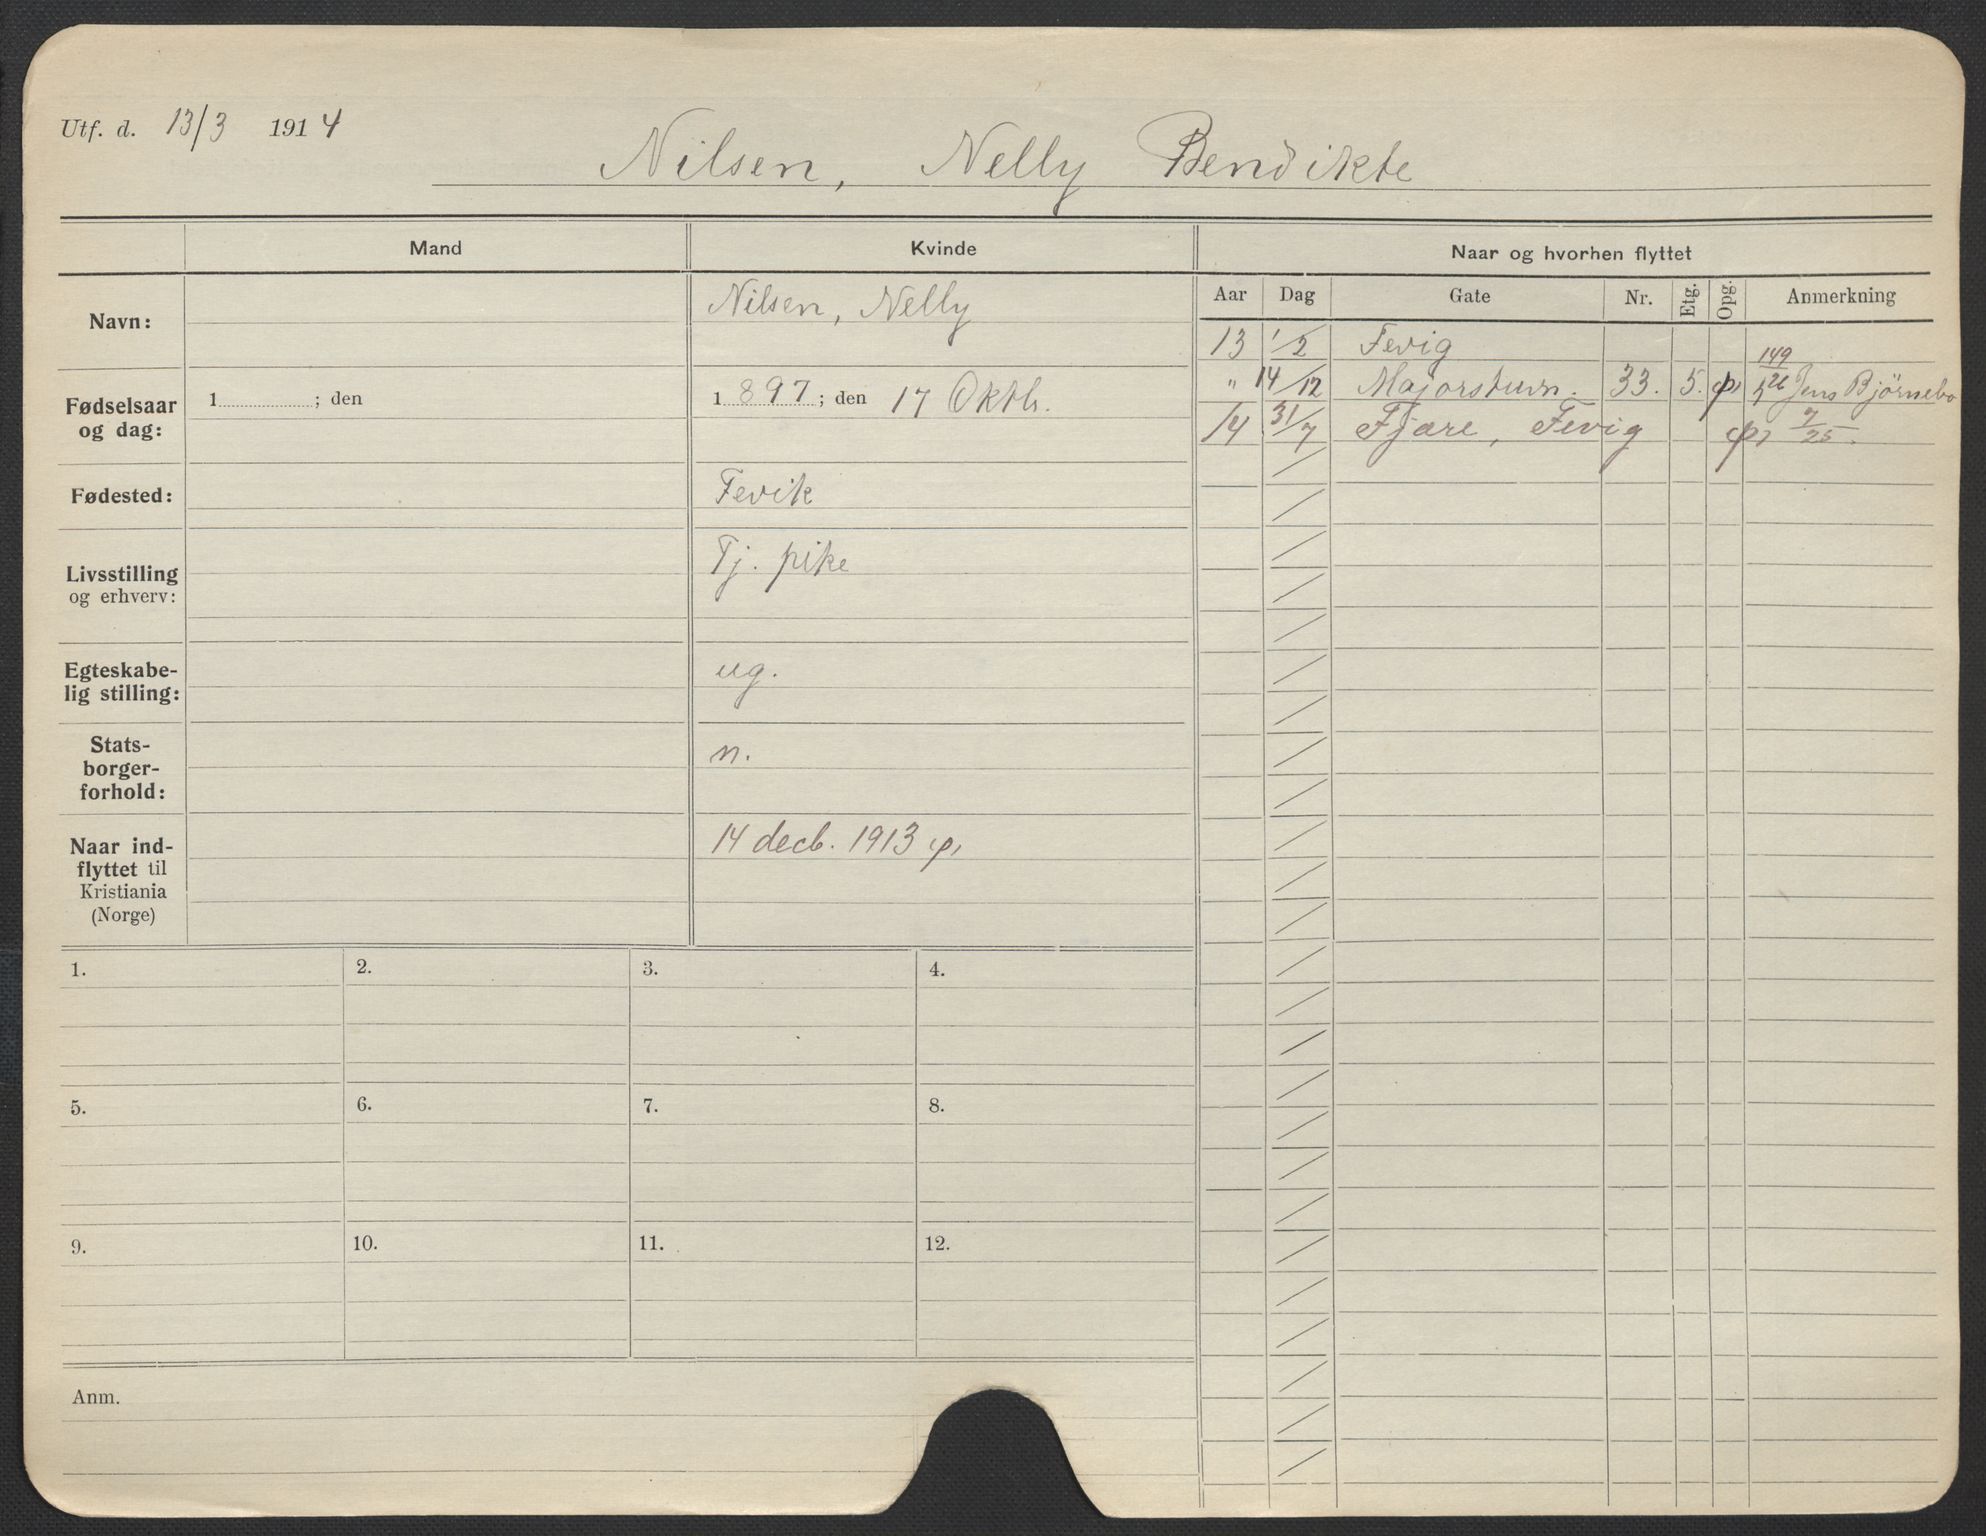 Utf. d. 13/3 1914
Nilsen, Nelly Bendikte
Mand
Kvinde
Naar og hvorhen flyttet
Navn:
Nilsen, Nelly
Fødselsaar og dag:
1 ; den
1897; den 17 Oktb.
Fødested:
Fevik
Livsstilling og erhverv:
Tj. pike
Egteskabe-
lig stilling:
ug.
Stats-
borger-
forhold:
n.
Naar ind-
flyttet til
Kristiania
(Norge)
14 decb. 1913 φ,
Aar Dag Gate Nr. Etg. Opg. Anmerkning
13 1/2 Fevig
" 14/12 Majorstuvn. 33. 5. φ, 149/26 Jens Bjørnebo
14 31/7 Fjære, Fevig φ, 7/25.
1. 2. 3. 4.
5. 6. 7. 8.
9. 10. 11. 12.
Anm.